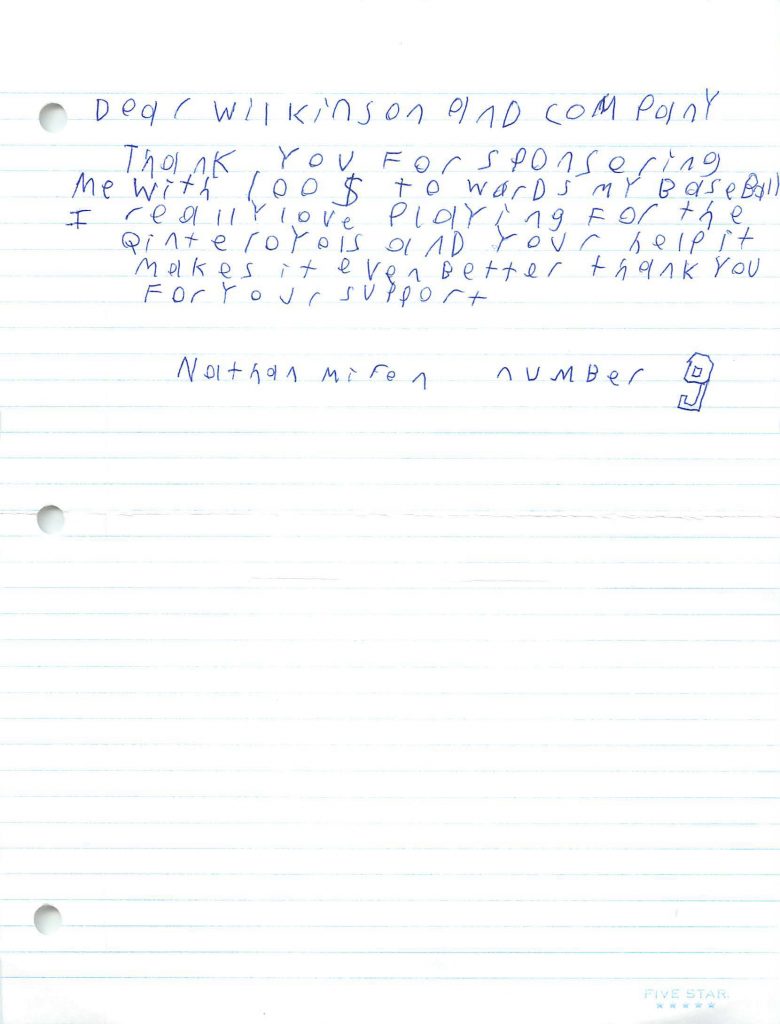 Dear Wilkinson and Company
Thank You For sponsering
Me with 100$ to wards my BaseBall
I really love Playing For the
Qinte royols and Your help it
makes it even Better thank you
For Your support
Nathan miFen number 9
FIVE STAR.